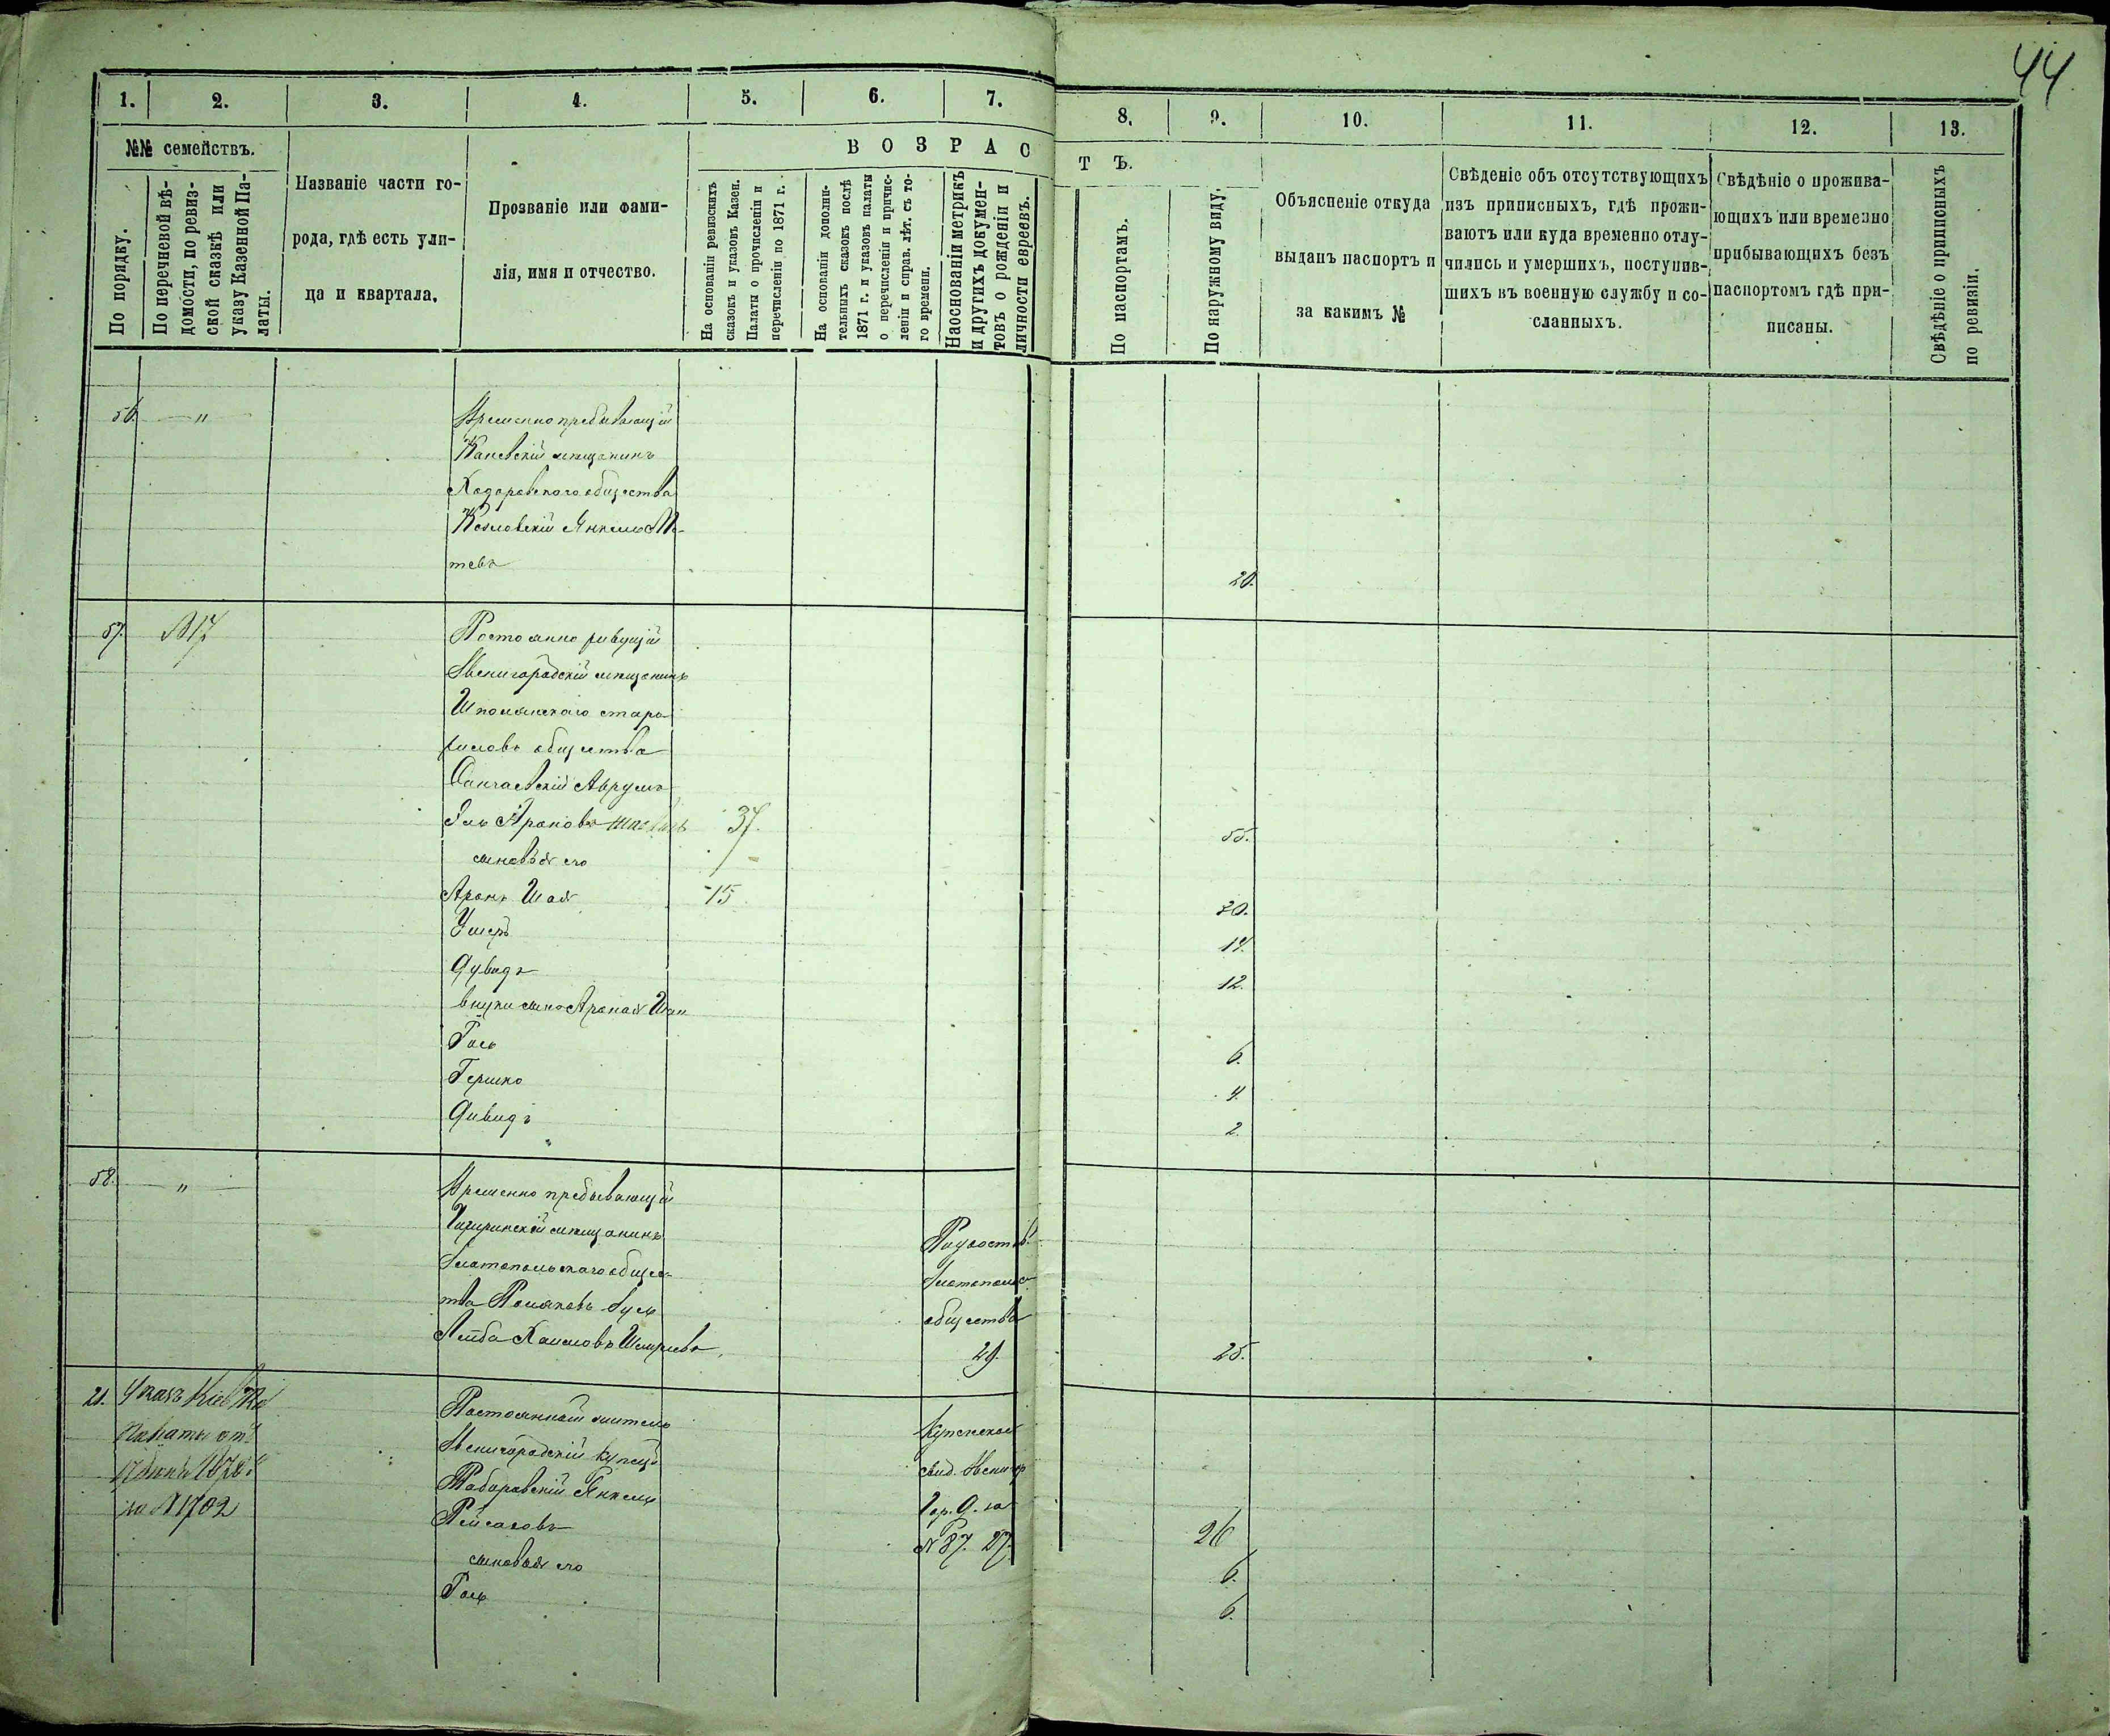 44
1. 2. 3. 4. 5. 6. 7. 8. 9. 10. 11. 12. 13.
№№ семействъ.
По порядку.
По перечневой вѣ-
домости, по ревиз-
ской сказкѣ или
указу Казенной Па-
латы.
Названіе части го-
рода, гдѣ есть ули-
ца и квартала.
Прозваніе или фами-
лія, имя и отчество.
ВОЗРАСТЪ.
На основаніи ревизскихъ
сказокъ и указовъ Казен.
Палаты о прочисленіи и
перечисленіи по 1871 г.
На основаніи дополни-
тельныхъ сказокъ послѣ
1871 г. и указовъ палаты
о перечисленіи и причис-
леніи и справ. лѣт. съ то-
го времени.
На основаніи метрикъ
и другихъ докумен-
товъ о рожденіи и
личности евреевъ.
По паспортамъ.
По наружному виду.
Объясненіе откуда
выданъ паспортъ и
за какимъ №
Свѣденіе объ отсутствующихъ
изъ приписныхъ, гдѣ прожи-
ваютъ или куда временно отлу-
чились и умершихъ, поступив-
шихъ въ военную службу и со-
сланныхъ.
Свѣдѣніе о прожива-
ющихъ или временно
прибывающихъ безъ
паспортомъ гдѣ при-
писаны.
Свѣдѣніе о приписныхъ
по ревизіи.
56. — " — Временно пребывающій
Каневскій мѣщанинъ
Ходоровскаго общества
Козловскій Янкель Мо-
тевъ 20.
57. №17 Постоянно живущій
Звенигородскій мѣщанинъ
Шполянскаго старо-
жиловъ общества
Аврумъ
Арановъ 37. 55.
сыновья его
Аронъ Шая 15 20.
Ушеръ 14.
Дувидъ 12.
внуки сына Арона Шаи
Гось 6.
Гершко 4.
Дувидъ 2.
58. — " — Временно пребывающій
Чигиринскій мѣщанинъ
Златопольскаго общес-
тва Поляковъ Зусь
Лейба Хаимовъ Шмулевъ 29. 25.
Златополь
общества
21. Указъ Кіев Каз
Палаты отъ
за №1702
Постоянный житель
Звенигородскій купецъ
Таборовскій Янкель
Пейсаховъ 26
сыновья его 6.
Гось 6.
Купеческое
свид. Звениг
Гор. Д. за
№87. 27.